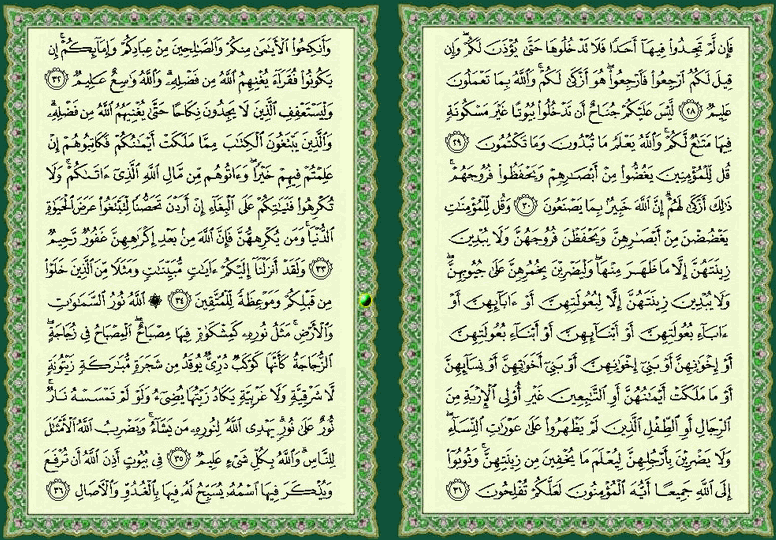 فَإِن لَّمْ تَجِدُوا۟ فِيهَآ أَحَدًا فَلَا تَدْخُلُوهَا حَتَّىٰ يُؤْذَنَ لَكُمْ ۖ وَإِن
قِيلَ لَكُمُ ٱرْجِعُوا۟ فَٱرْجِعُوا۟ ۖ هُوَ أَزْكَىٰ لَكُمْ ۚ وَٱللَّهُ بِمَا تَعْمَلُونَ
عَلِيمٌ ٢٨ لَّيْسَ عَلَيْكُمْ جُنَاحٌ أَن تَدْخُلُوا۟ بُيُوتًا غَيْرَ مَسْكُونَةٍ
فِيهَا مَتَٰعٌ لَّكُمْ ۚ وَٱللَّهُ يَعْلَمُ مَا تُبْدُونَ وَمَا تَكْتُمُونَ ٢٩
قُل لِّلْمُؤْمِنِينَ يَغُضُّوا۟ مِنْ أَبْصَٰرِهِمْ وَيَحْفَظُوا۟ فُرُوجَهُمْ ۚ
ذَٰلِكَ أَزْكَىٰ لَهُمْ ۗ إِنَّ ٱللَّهَ خَبِيرٌۢ بِمَا يَصْنَعُونَ ٣٠ وَقُل لِّلْمُؤْمِنَٰتِ
يَغْضُضْنَ مِنْ أَبْصَٰرِهِنَّ وَيَحْفَظْنَ فُرُوجَهُنَّ وَلَا يُبْدِينَ
زِينَتَهُنَّ إِلَّا مَا ظَهَرَ مِنْهَا ۖ وَلْيَضْرِبْنَ بِخُمُرِهِنَّ عَلَىٰ جُيُوبِهِنَّ ۖ
وَلَا يُبْدِينَ زِينَتَهُنَّ إِلَّا لِبُعُولَتِهِنَّ أَوْ ءَابَآئِهِنَّ أَوْ
ءَابَآءِ بُعُولَتِهِنَّ أَوْ أَبْنَآئِهِنَّ أَوْ أَبْنَآءِ بُعُولَتِهِنَّ
أَوْ إِخْوَٰنِهِنَّ أَوْ بَنِىٓ إِخْوَٰنِهِنَّ أَوْ بَنِىٓ أَخَوَٰتِهِنَّ أَوْ نِسَآئِهِنَّ
أَوْ مَا مَلَكَتْ أَيْمَٰنُهُنَّ أَوِ ٱلتَّٰبِعِينَ غَيْرِ أُو۟لِى ٱلْإِرْبَةِ مِنَ
ٱلرِّجَالِ أَوِ ٱلطِّفْلِ ٱلَّذِينَ لَمْ يَظْهَرُوا۟ عَلَىٰ عَوْرَٰتِ ٱلنِّسَآءِ ۖ
وَلَا يَضْرِبْنَ بِأَرْجُلِهِنَّ لِيُعْلَمَ مَا يُخْفِينَ مِن زِينَتِهِنَّ ۚ وَتُوبُوٓا۟
إِلَى ٱللَّهِ جَمِيعًا أَيُّهَ ٱلْمُؤْمِنُونَ لَعَلَّكُمْ تُفْلِحُونَ ٣١
وَأَنكِحُوا۟ ٱلْأَيَٰمَىٰ مِنكُمْ وَٱلصَّٰلِحِينَ مِنْ عِبَادِكُمْ وَإِمَآئِكُمْ ۚ إِن
يَكُونُوا۟ فُقَرَآءَ يُغْنِهِمُ ٱللَّهُ مِن فَضْلِهِۦ ۗ وَٱللَّهُ وَٰسِعٌ عَلِيمٌ ٣٢
وَلْيَسْتَعْفِفِ ٱلَّذِينَ لَا يَجِدُونَ نِكَاحًا حَتَّىٰ يُغْنِيَهُمُ ٱللَّهُ مِن فَضْلِهِۦ ۗ
وَٱلَّذِينَ يَبْتَغُونَ ٱلْكِتَٰبَ مِمَّا مَلَكَتْ أَيْمَٰنُكُمْ فَكَاتِبُوهُمْ إِنْ
عَلِمْتُمْ فِيهِمْ خَيْرًا ۖ وَءَاتُوهُم مِّن مَّالِ ٱللَّهِ ٱلَّذِىٓ ءَاتَىٰكُمْ ۚ وَلَا
تُكْرِهُوا۟ فَتَيَٰتِكُمْ عَلَى ٱلْبِغَآءِ إِنْ أَرَدْنَ تَحَصُّنًا لِّتَبْتَغُوا۟ عَرَضَ ٱلْحَيَوٰةِ
ٱلدُّنْيَا ۚ وَمَن يُكْرِههُّنَّ فَإِنَّ ٱللَّهَ مِنۢ بَعْدِ إِكْرَٰهِهِنَّ غَفُورٌ رَّحِيمٌ
٣٣ وَلَقَدْ أَنزَلْنَآ إِلَيْكُمْ ءَايَٰتٍ مُّبَيِّنَٰتٍ وَمَثَلًا مِّنَ ٱلَّذِينَ خَلَوْا۟
مِن قَبْلِكُمْ وَمَوْعِظَةً لِّلْمُتَّقِينَ ٣٤ ۞ ٱللَّهُ نُورُ ٱلسَّمَٰوَٰتِ
وَٱلْأَرْضِ ۚ مَثَلُ نُورِهِۦ كَمِشْكَوٰةٍ فِيهَا مِصْبَاحٌ ۖ ٱلْمِصْبَاحُ فِى زُجَاجَةٍ ۖ
ٱلزُّجَاجَةُ كَأَنَّهَا كَوْكَبٌ دُرِّىٌّ يُوقَدُ مِن شَجَرَةٍ مُّبَٰرَكَةٍ زَيْتُونَةٍ
لَّا شَرْقِيَّةٍ وَلَا غَرْبِيَّةٍ يَكَادُ زَيْتُهَا يُضِىٓءُ وَلَوْ لَمْ تَمْسَسْهُ نَارٌ ۚ
نُّورٌ عَلَىٰ نُورٍ ۗ يَهْدِى ٱللَّهُ لِنُورِهِۦ مَن يَشَآءُ ۚ وَيَضْرِبُ ٱللَّهُ ٱلْأَمْثَٰلَ
لِلنَّاسِ ۗ وَٱللَّهُ بِكُلِّ شَىْءٍ عَلِيمٌ ٣٥ فِى بُيُوتٍ أَذِنَ ٱللَّهُ أَن تُرْفَعَ
وَيُذْكَرَ فِيهَا ٱسْمُهُۥ يُسَبِّحُ لَهُۥ فِيهَا بِٱلْغُدُوِّ وَٱلْءَاصَالِ ٣٦